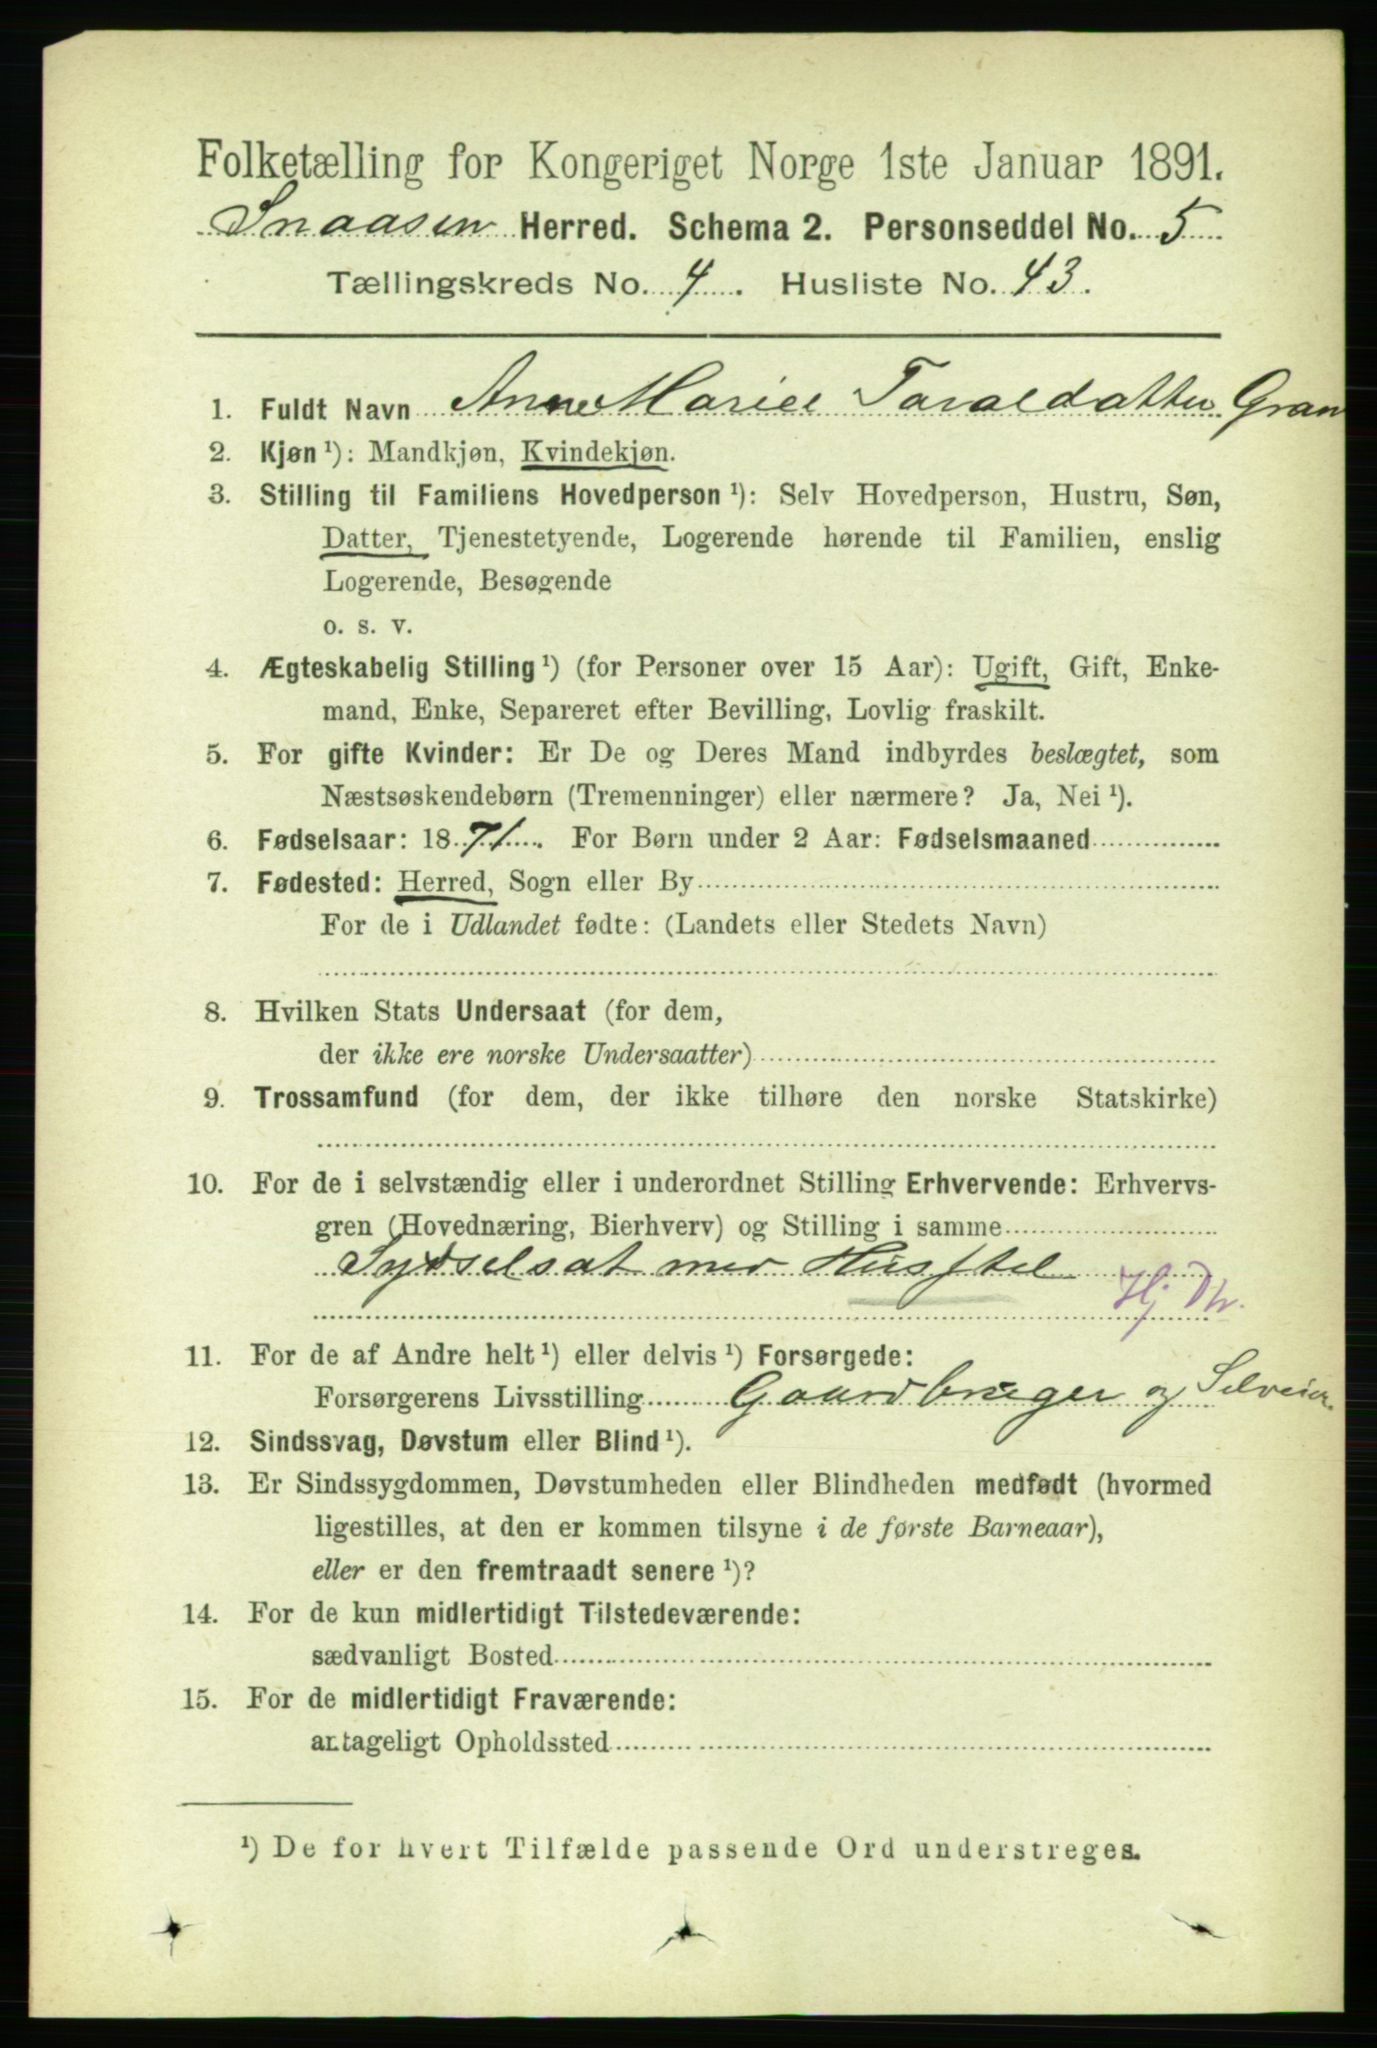 Folketælling for Kongeriget Norge 1ste Januar 1891.
Snaasen Herred. Schema 2. Personseddel No. 5
Tællingskreds No. 4. Husliste No. 43.
1. Fuldt Navn Anne Marie Taraldatter Gran
2. Kjøn ¹): Mandkjøn, Kvindekjøn.
3. Stilling til Familiens Hovedperson ¹): Selv Hovedperson, Hustru, Søn,
Datter, Tjenestetyende, Logerende hørende til Familien, enslig
Logerende, Besøgende
o. s. v.
4. Ægteskabelig Stilling ¹) (for Personer over 15 Aar): Ugift, Gift, Enke-
mand, Enke, Separeret efter Bevilling, Lovlig fraskilt.
5. For gifte Kvinder: Er De og Deres Mand indbyrdes beslægtet, som
Næstsøskendebørn (Tremenninger) eller nærmere? Ja, Nei ¹).
6. Fødselsaar: 1871. For Børn under 2 Aar: Fødselsmaaned
7. Fødested: Herred, Sogn eller By
For de i Udlandet fødte: (Landets eller Stedets Navn)
8. Hvilken Stats Undersaat (for dem,
der ikke ere norske Undersaatter)
9. Trossamfund (for dem, der ikke tilhøre den norske Statskirke)
10. For de i selvstændig eller i underordnet Stilling Erhvervende: Erhvervs-
gren (Hovednæring, Bierhverv) og Stilling i samme
Sysselsat med Husstel
Hj Dtr.
11. For de af Andre helt ¹) eller delvis ¹) Forsørgede:
Forsørgerens Livsstilling Gaardbruger og Selveier.
12. Sindssvag, Døvstum eller Blind ¹).
13. Er Sindssygdommen, Døvstumheden eller Blindheden medfødt (hvormed
ligestilles, at den er kommen tilsyne i de første Barneaar),
eller er den fremtraadt senere ¹)?
14. For de kun midlertidigt Tilstedeværende:
sædvanligt Bosted
15. For de midlertidigt Fraværende:
antageligt Opholdssted
¹) De for hvert Tilfælde passende Ord understreges.